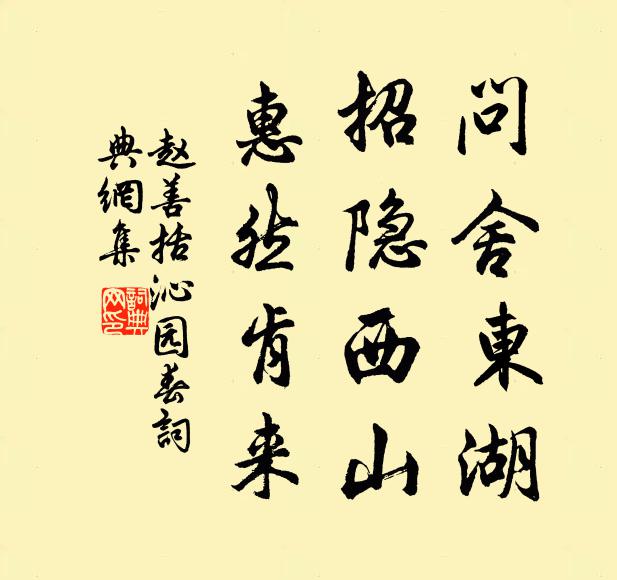 问舍東湖
招隐西山
惠然肯来
赵善括沁园春詞
典網集
詞典
网印